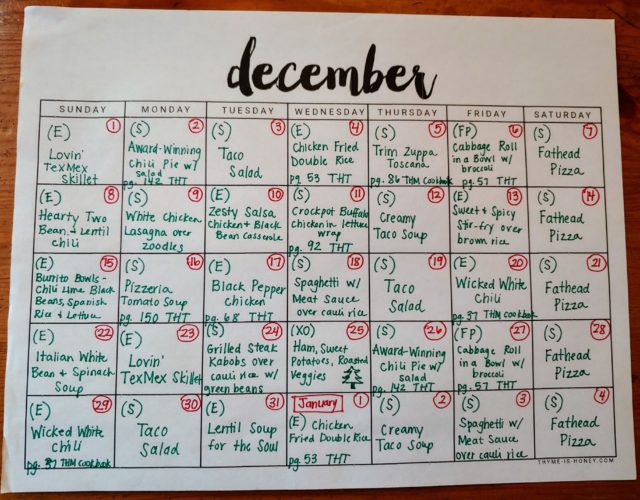 december
SUNDAY MONDAY TUESDAY WEDNESDAY THURSDAY FRIDAY SATURDAY
(E) 1
Lovin'
TexMex
Skillet
(S) 2
Award-Winning
Chili Pie w/
salad
pg. 142 THT
(S) 3
Taco
Salad
(E) 4
Chicken Fried
Double Rice
pg. 53 THT
(S) 5
Trim Zuppa
Toscana
pg. 86 THM Cookbook
(FP) 6
Cabbage Roll
in a Bowl w/
broccoli
pg. 57 THT
(S) 7
Fathead
Pizza
(E) 8
Hearty Two
Bean & Lentil
chili
(S) 9
White Chicken
Lasagna over
zoodles
(E) 10
Zesty Salsa
Chicken & Black
Bean Casserole
(S) 11
Crockpot Buffalo
Chicken in lettuce
wrap
pg. 92 THT
(S) 12
Creamy
Taco Soup
(E) 13
Sweet & Spicy
Stir-fry over
brown rice
(S) 14
Fathead
Pizza
(E) 15
Burrito Bowls -
Chili Lime Black
Beans, Spanish
Rice & Lettuce
(S) 16
Pizzeria
Tomato Soup
pg. 150 THT
(E) 17
Black Pepper
Chicken
pg. 68 THT
(S) 18
Spaghetti w/
Meat Sauce
over cauli rice
(S) 19
Taco
Salad
(E) 20
Wicked White
Chili
pg. 37 THM cookbook
(S) 21
Fathead
Pizza
(E) 22
Italian White
Bean & Spinach
Soup
(E) 23
Lovin'
TexMex Skillet
(S) 24
Grilled Steak
Kabobs over
cauli rice w/
green beans
(XO) 25
Ham, Sweet
Potatoes, Roasted
Veggies
(S) 26
Award-Winning
Chili Pie w/
salad
pg. 142 THT
(FP) 27
Cabbage Roll
in a Bowl w/
broccoli
pg. 57 THT
(S) 28
Fathead
Pizza
(E) 29
Wicked White
chili
pg. 37 THM cookbook
(S) 30
Taco
Salad
(E) 31
Lentil Soup
for the Soul
January 1
(E) Chicken
Fried Double Rice
pg. 53 THT
(S) 2
Creamy
Taco Soup
(S) 3
Spaghetti w/
Meat Sauce
over cauli rice
(S) 4
Fathead
Pizza
THYME-IS-HONEY.COM